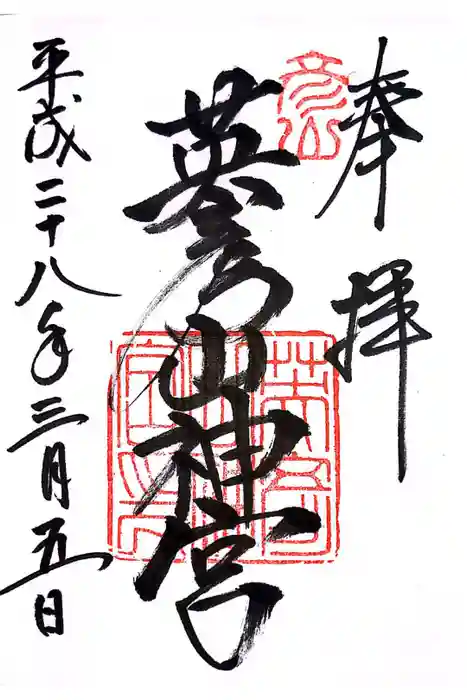 奉拝
彦山
英彦山神宮
平成二十八年三月五日